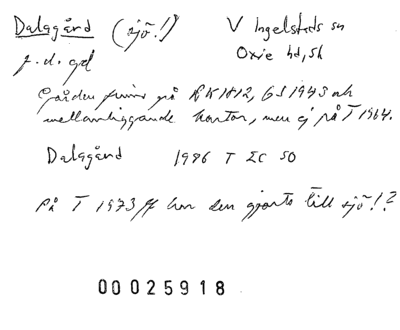 Dalagård (sjö!)
V Ingelstads sn
Oxie hd, Sk
f.d. gd
Gården finns på RK 1812, GS 1943 och
mellanliggande kartor, men ej på T 1964.
Dalagård 1996 T 2C SO
På T 1973 ff har den gjorts till sjö!?
00025918